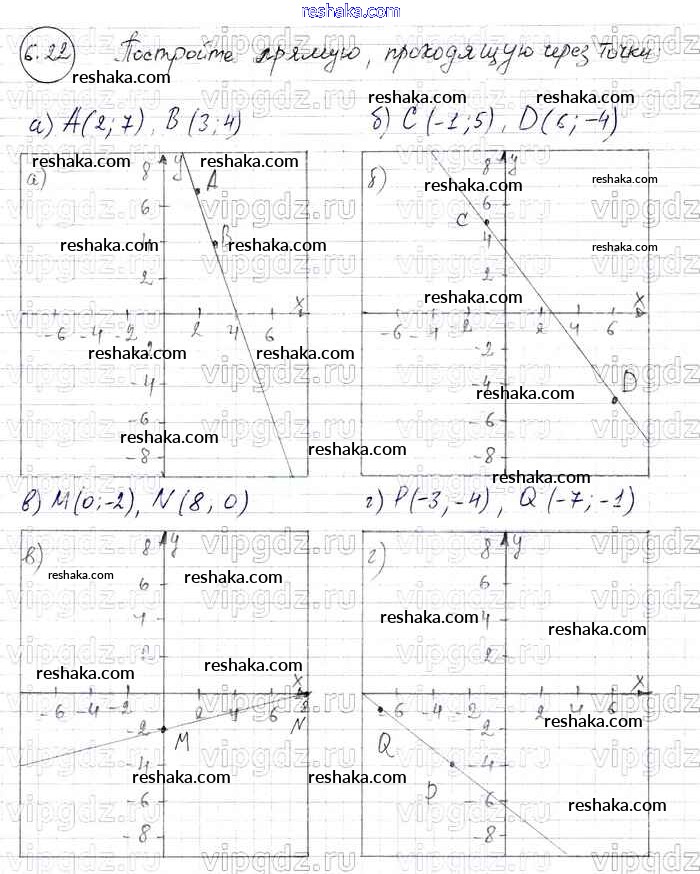 reshaka.com
6.22 Постройте прямую, проходящую через точки:
reshaka.com reshaka.com
а) A(2;7), B(3;4) б) C(-1;5), D(6;-4)
reshaka.com reshaka.com reshaka.com reshaka.com
а) 8 y A б) 8 y
vipgdz.ru vipgdz.ru
6 6
C
reshaka.com 4 B 4 reshaka.com
vipgdz.ru vipgdz.ru
2 2
reshaka.com x x
-6 -4 -2 2 4 6 -6 -4 -2 2 4 6
reshaka.com -2 reshaka.com -2 reshaka.com
-4 -4 D
reshaka.com
-6 -6
reshaka.com reshaka.com
-8 -8
в) M(0;-2), N(8,0) г) P(-3,-4), Q(-7;-1)
в) 8 y г) 8 y
vipgdz.ru vipgdz.ru
reshaka.com reshaka.com
6 6
4 reshaka.com 4 reshaka.com
2 2
reshaka.com reshaka.com
x x
-6 -4 -2 2 4 6 8 -6 -4 -2 2 4 6
-2 M N Q -2
reshaka.com reshaka.com reshaka.com
-4 P -4
-6 -6 reshaka.com
reshaka.com reshaka.com
-8 -8